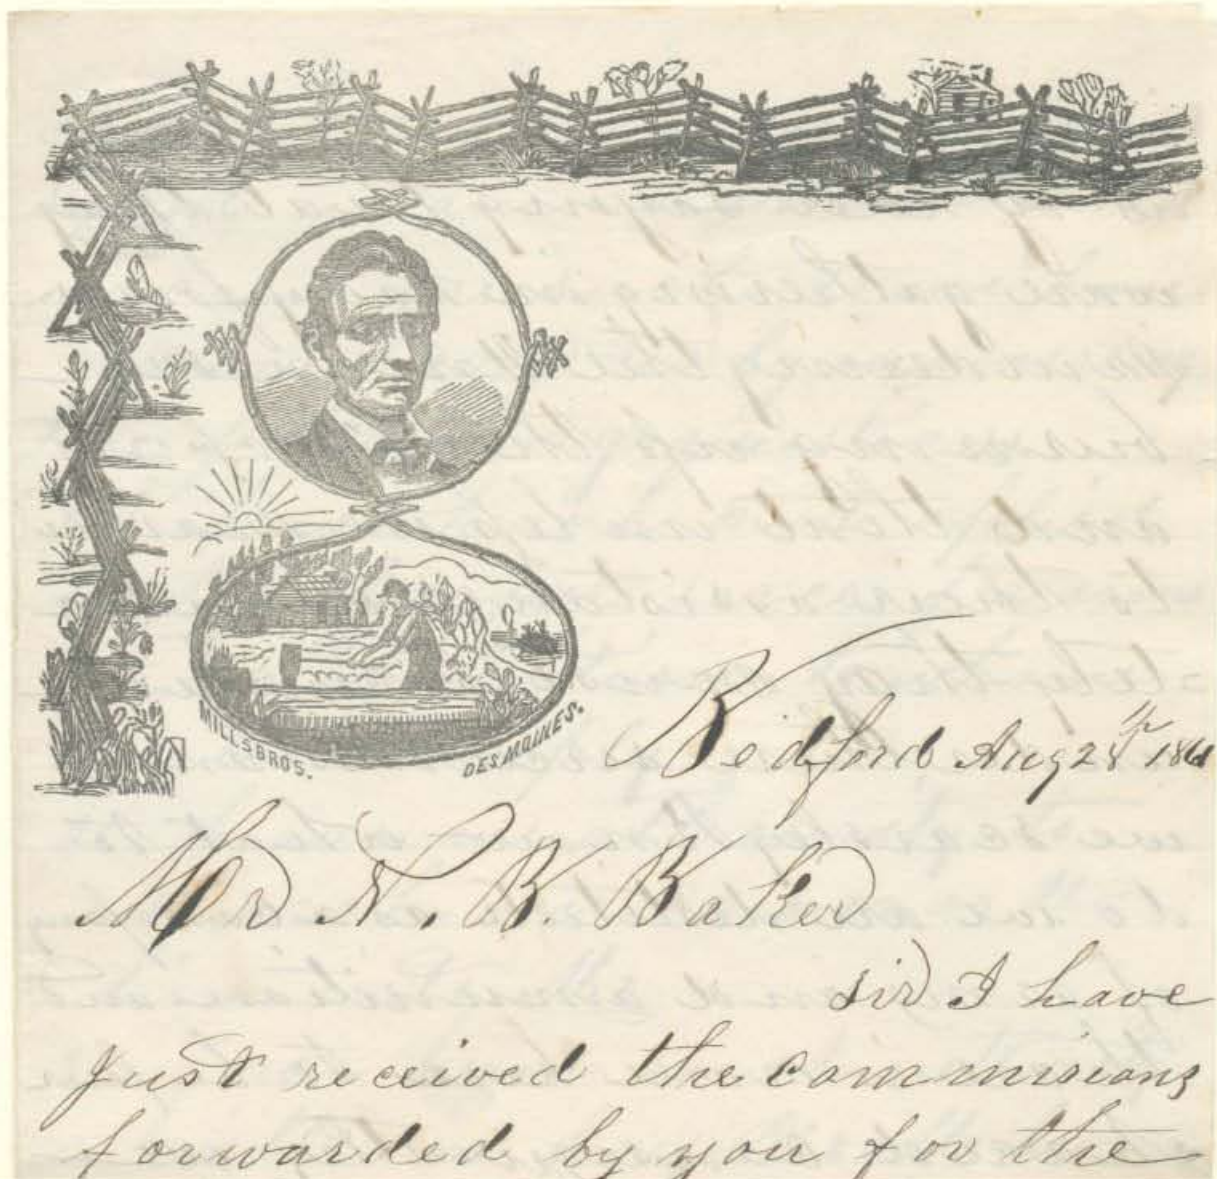 MILLS BROS. DES MOINES.
Bedford Aug 28th 1861
Mr N. B. Baker
sir I have
just received the commisions
forwarded by you for the